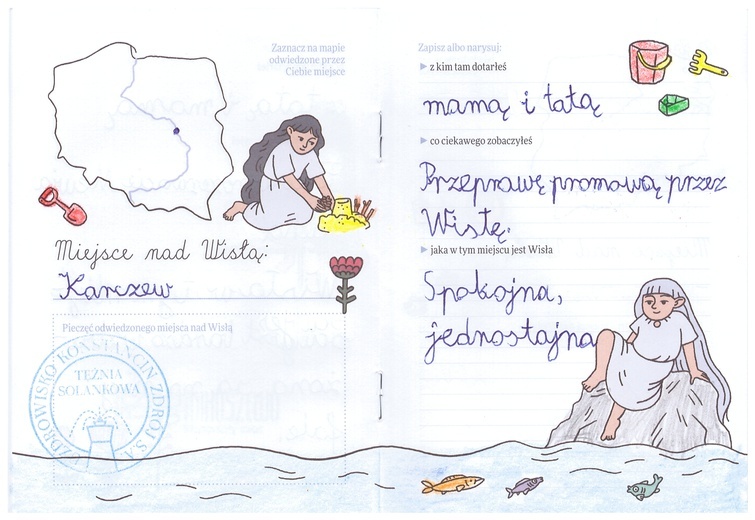 Zaznacz na mapie
odwiedzone przez
Ciebie miejsce
Miejsce nad Wisłą:
Karczew
Pieczęć odwiedzonego miejsca nad Wisłą
UZDROWISKO KONSTANCIN ZDRÓJ S.A.
TĘŻNIA
SOLANKOWA
Zapisz albo narysuj:
z kim tam dotarłeś
mamą i tatą
co ciekawego zobaczyłeś
Przeprawę promową przez
Wisłę.
jaka w tym miejscu jest Wisła
Spokojna,
jednostajna